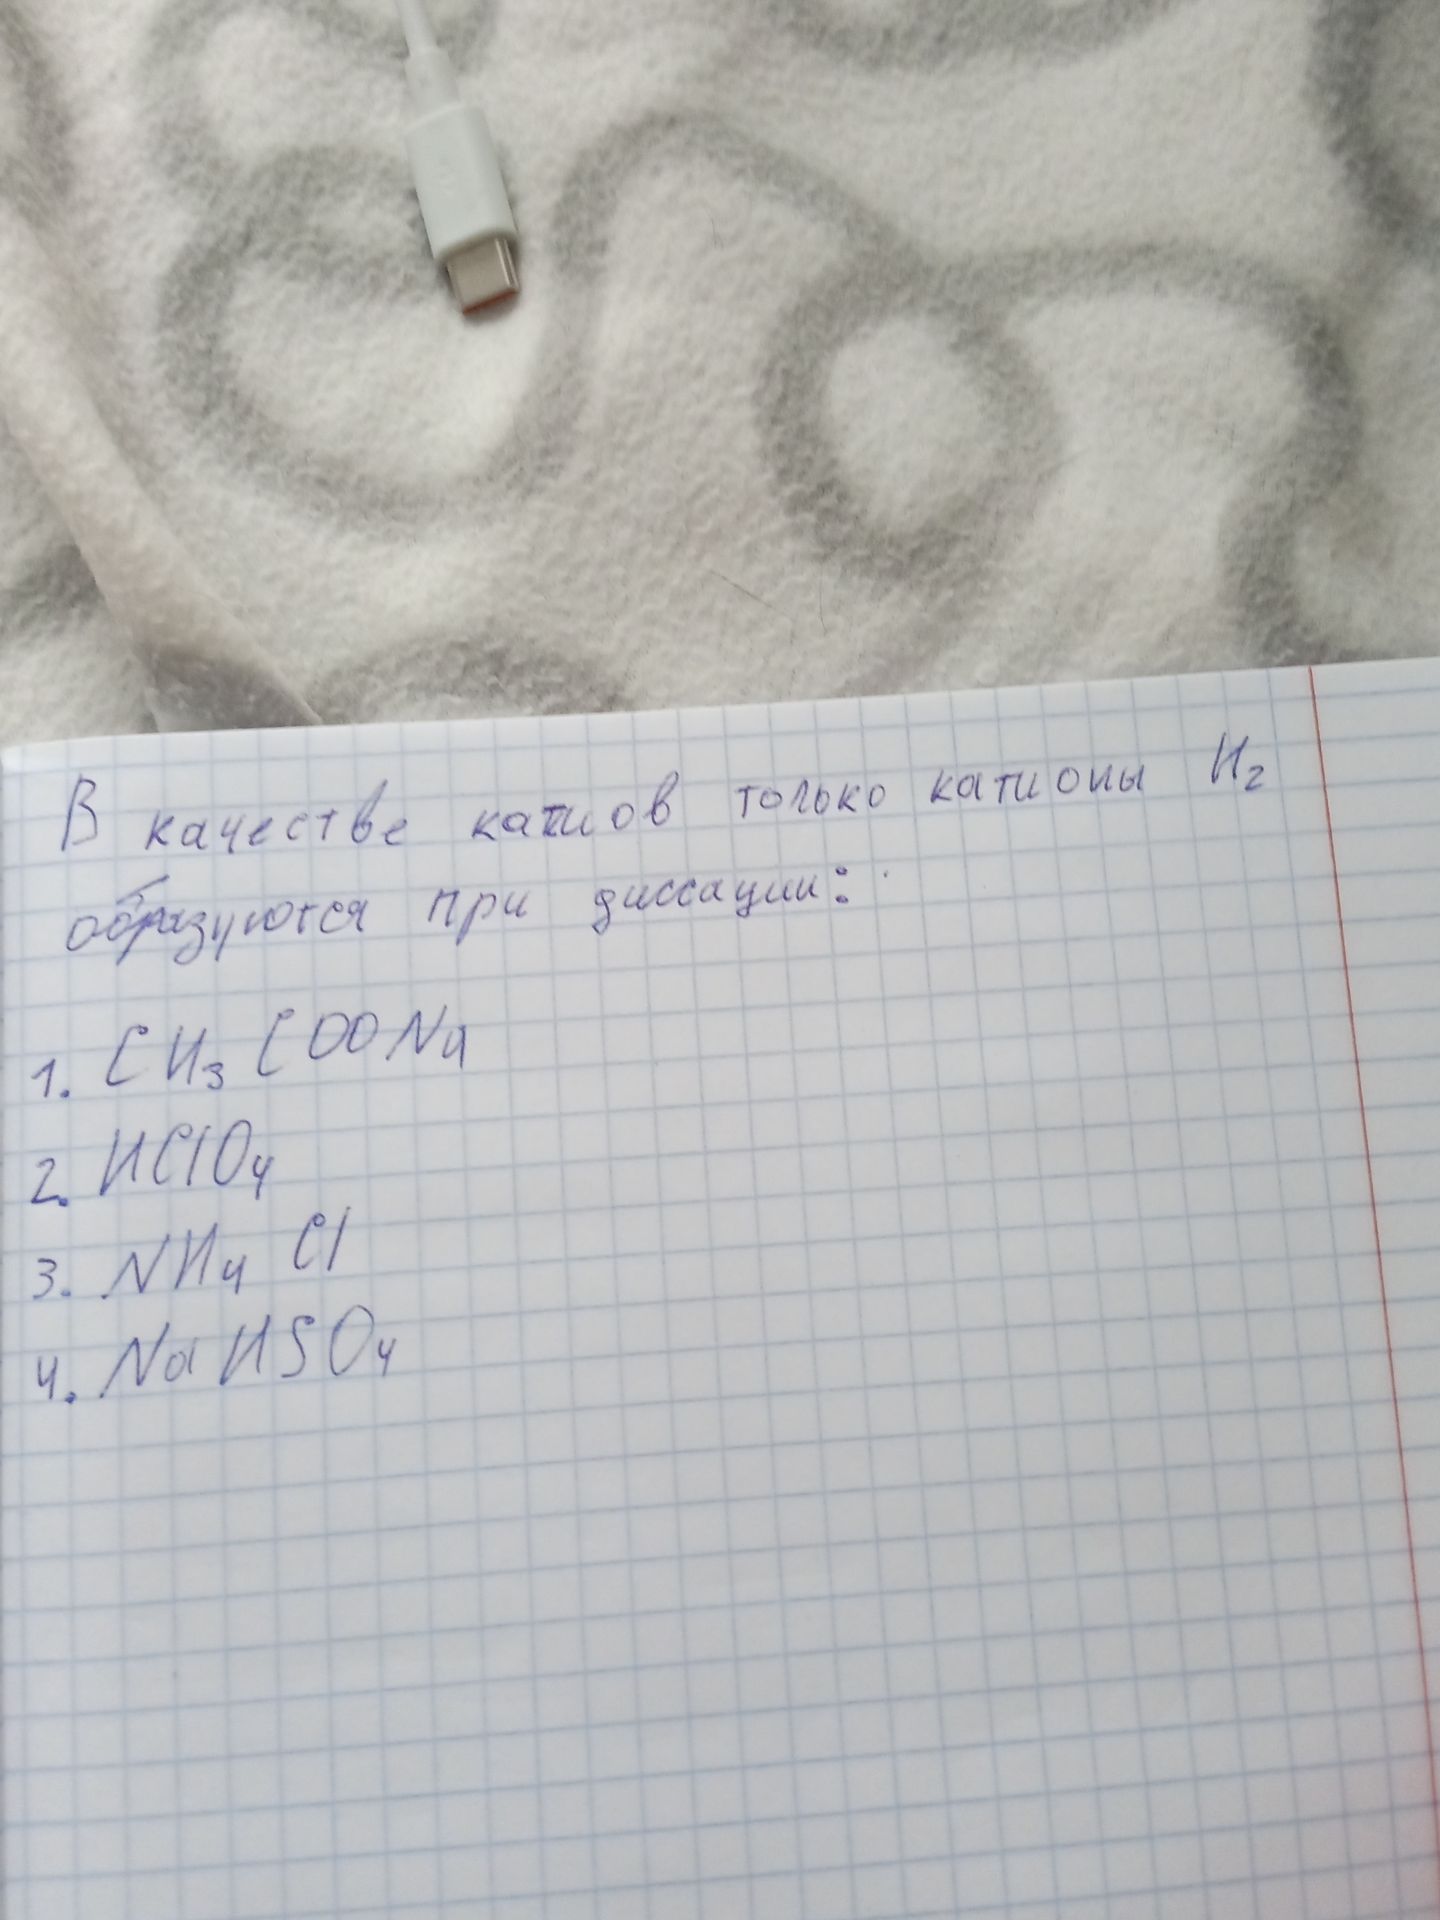 В качестве катиов только катионы H₂
образуются при диссации:
1. CH₃COONa
2. HClO₄
3. NH₄Cl
4. NaHSO₄